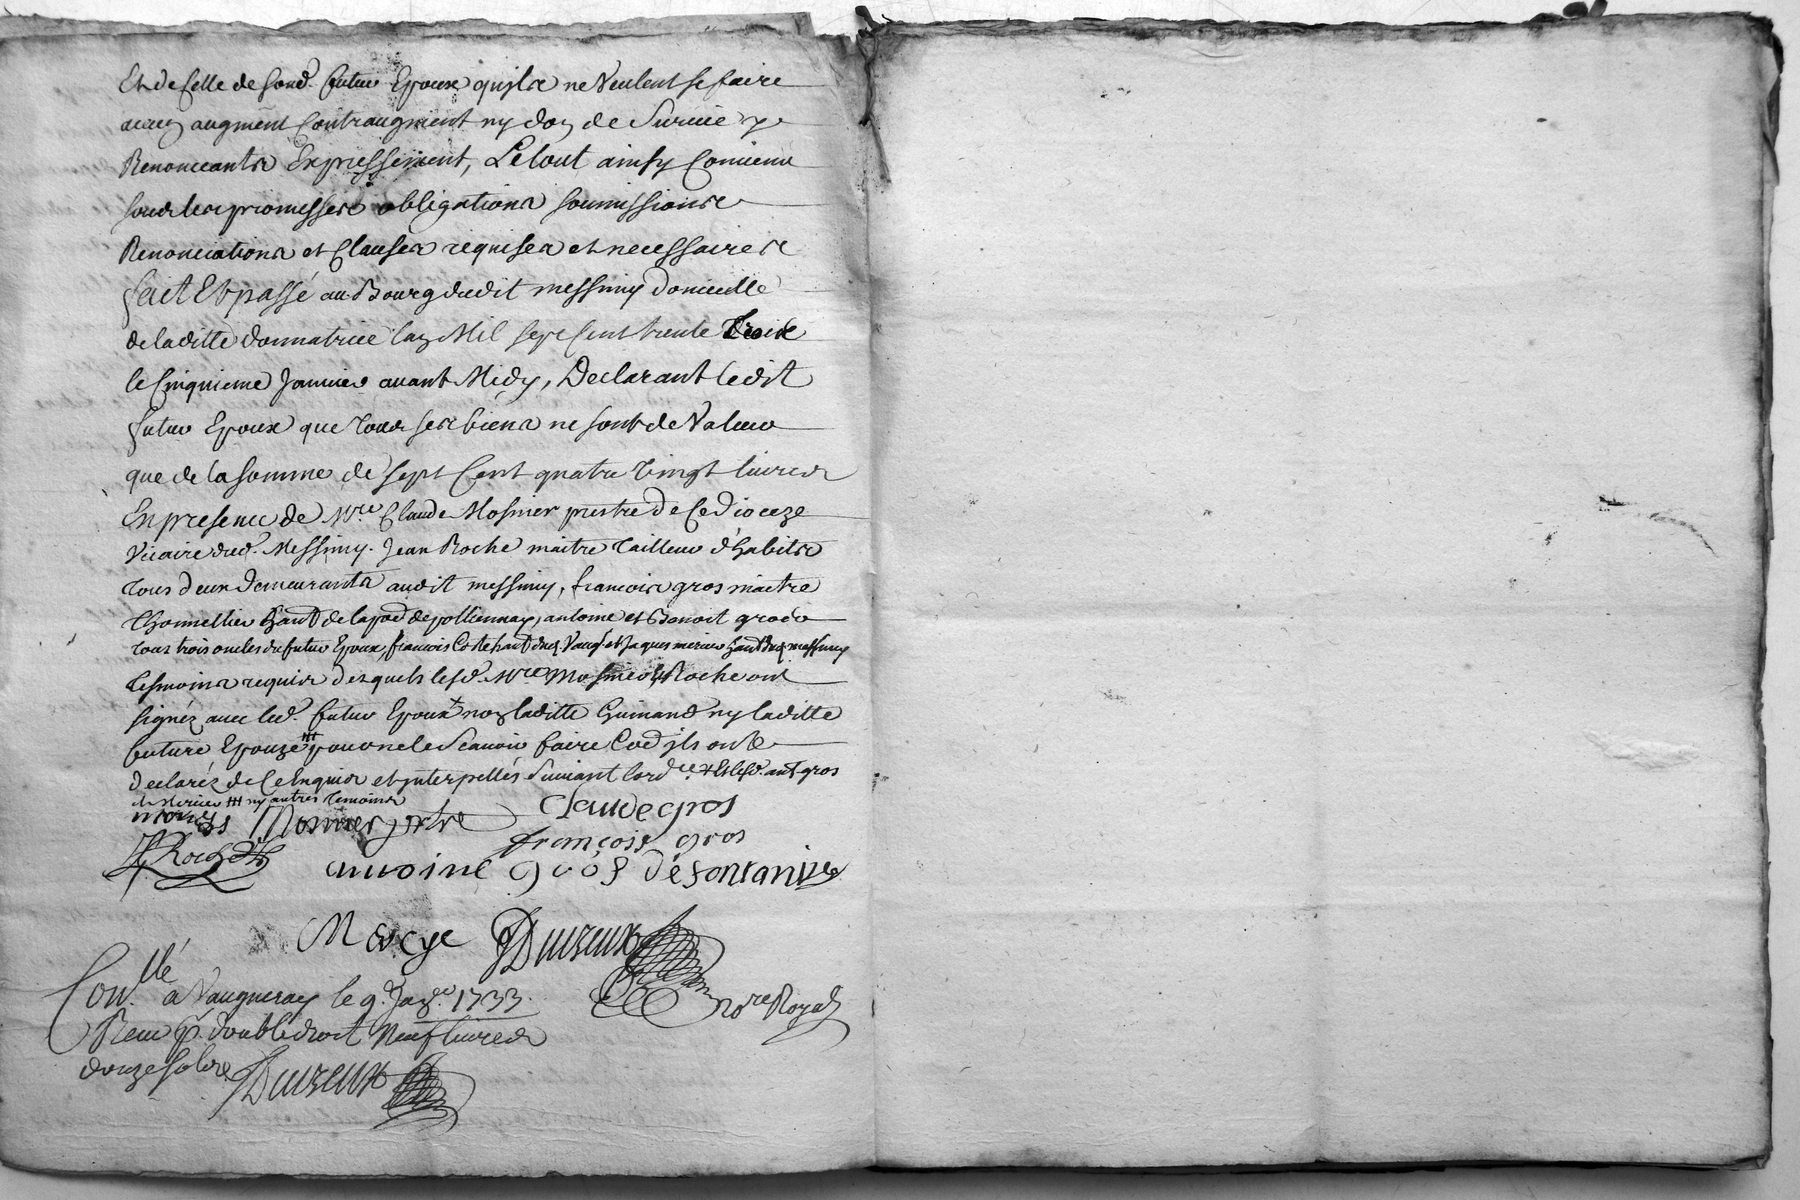 Et de celle de sond. futur Epoux quils ne veulent se faire
aucun augment Contraugment ny don de Survie y
Renonceants Expressement, Le tout ainsy Convenu
sous les promesses obligations soumissions
Renonciations et Clauses requises et necessaires
fait Et passé au Bourg dudit messimy domicille
de laditte donnatrice l'an Mil sept Cent trente Trois
le Cinquieme Janvier avant Midy, Declarant ledit
futur Epoux que tous ses biens ne sont de Valeur
que de la somme de sept Cent quatre vingt livres
En presence de Mre Claude Mosnier prestre de Ce dioceze
Vicaire dud. Messimy. Jean Roche maitre Tailleur d'habits
tous deux demeurants audit messimy, francois gros maitre
Thonnellier habt de la par de pollionnay, antoine et Benoit gros
tous trois oncles du futur Epoux, francois Coste habt dud. Vaug. et Jaques mercier habt dud. messimy
Tesmoins requis desquels lesd. Mre Mosnier & Roche ont
signéz avec led. futur Epoux + non laditte Guinand ny laditte
future Epouze ### pour ne le scavoir faire Co'd ils ont
declaréz de Ce Enquis et interpellés suivant l'ord.ce + Et lesd. ant gros
et Mercier ### ny autres temoins
Mosnier ptre Claude gros
francois gros
J Roche
antoine gros desontanive
Mercye Duvreux
Con.llé à Vaugneray le 9. Janv. 1733.
Receu p. double droit Neuf livres
douze sols Duvreux
nore Royal